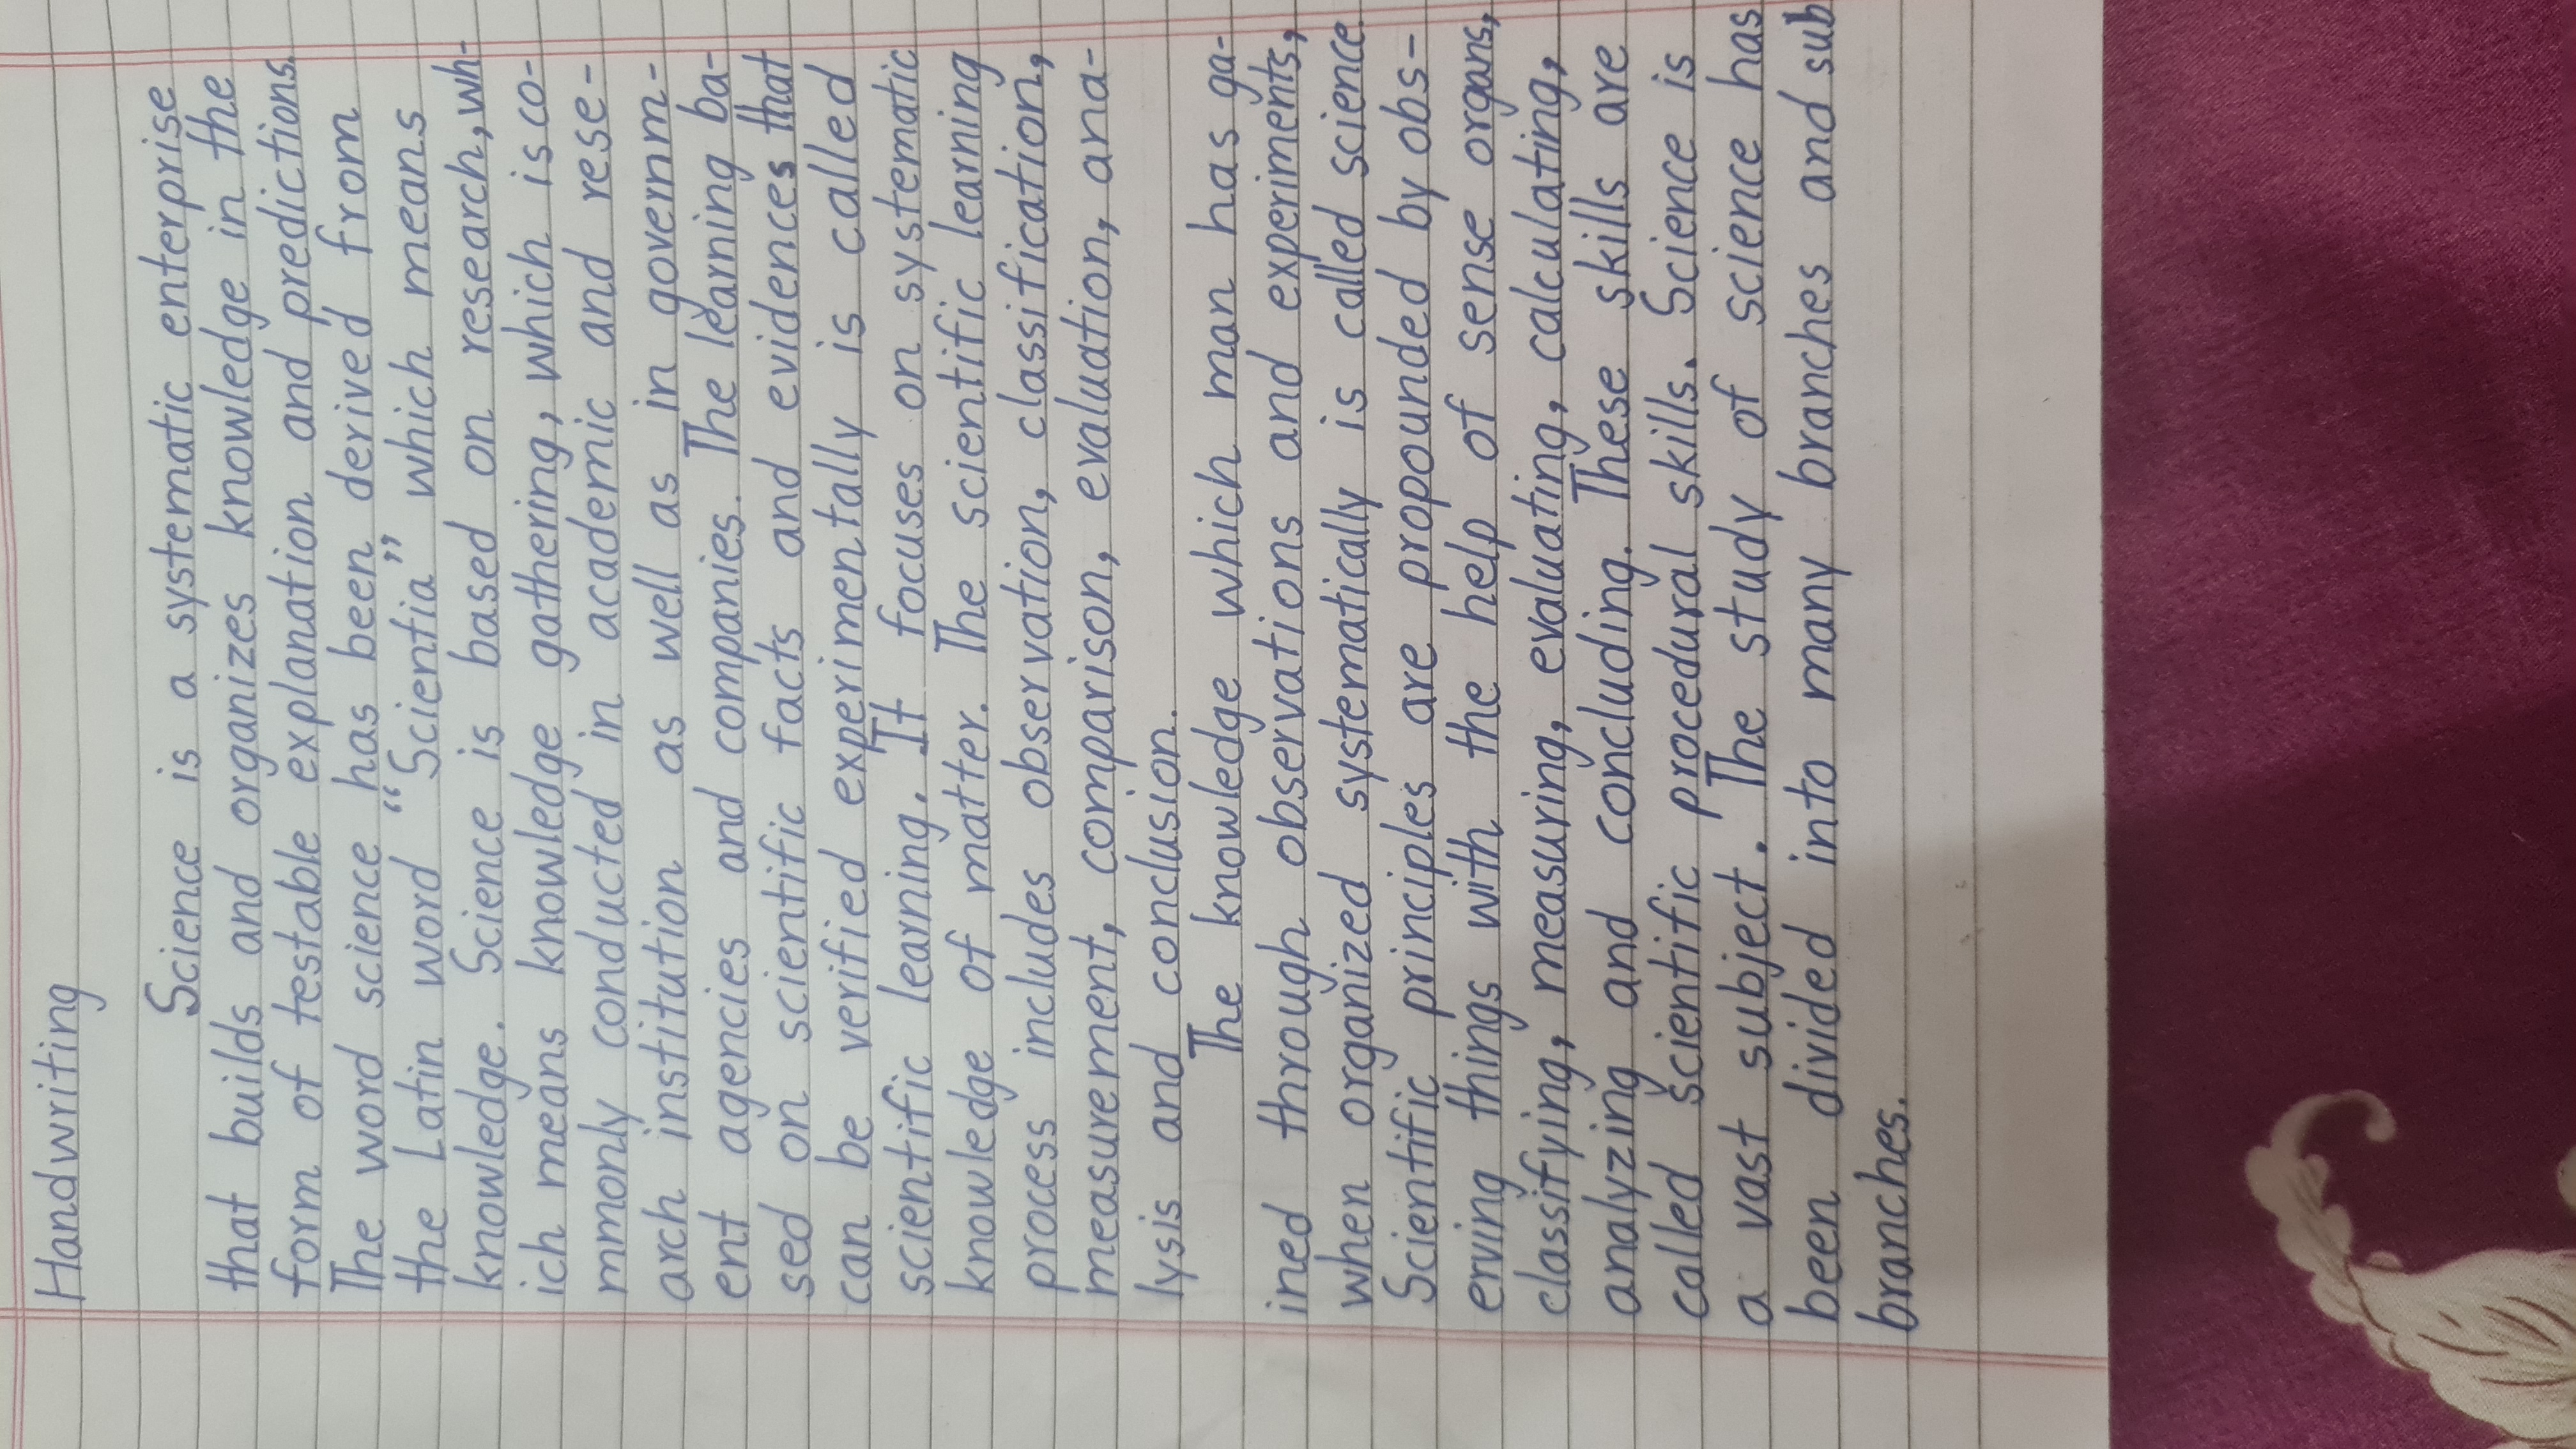 Handwriting
Science is a systematic enterprise
that builds and organizes knowledge in the
form of testable explanation and predictions.
The word science has been derived from
the Latin word "Scientia" which means
knowledge. Science is based on research, wh-
ich means knowledge gathering, which is co-
mmonly conducted in academic and rese-
arch institution as well as in governm-
ent agencies and companies. The learning ba-
sed on scientific facts and evidences that
can be verified experimentally is called
scientific learning. It focuses on systematic
knowledge of matter. The scientific learning
process includes observation, classification,
measurement, comparison, evaluation, ana-
lysis and conclusion.
The knowledge which man has ga-
ined through observations and experiments,
when organized systematically is called science.
Scientific principles are propounded by obs-
erving things with the help of sense organs,
classifying, measuring, evaluating, calculating,
analyzing and concluding. These skills are
called scientific procedural skills. Science is
a vast subject. The study of science has
been divided into many branches and sub
branches.